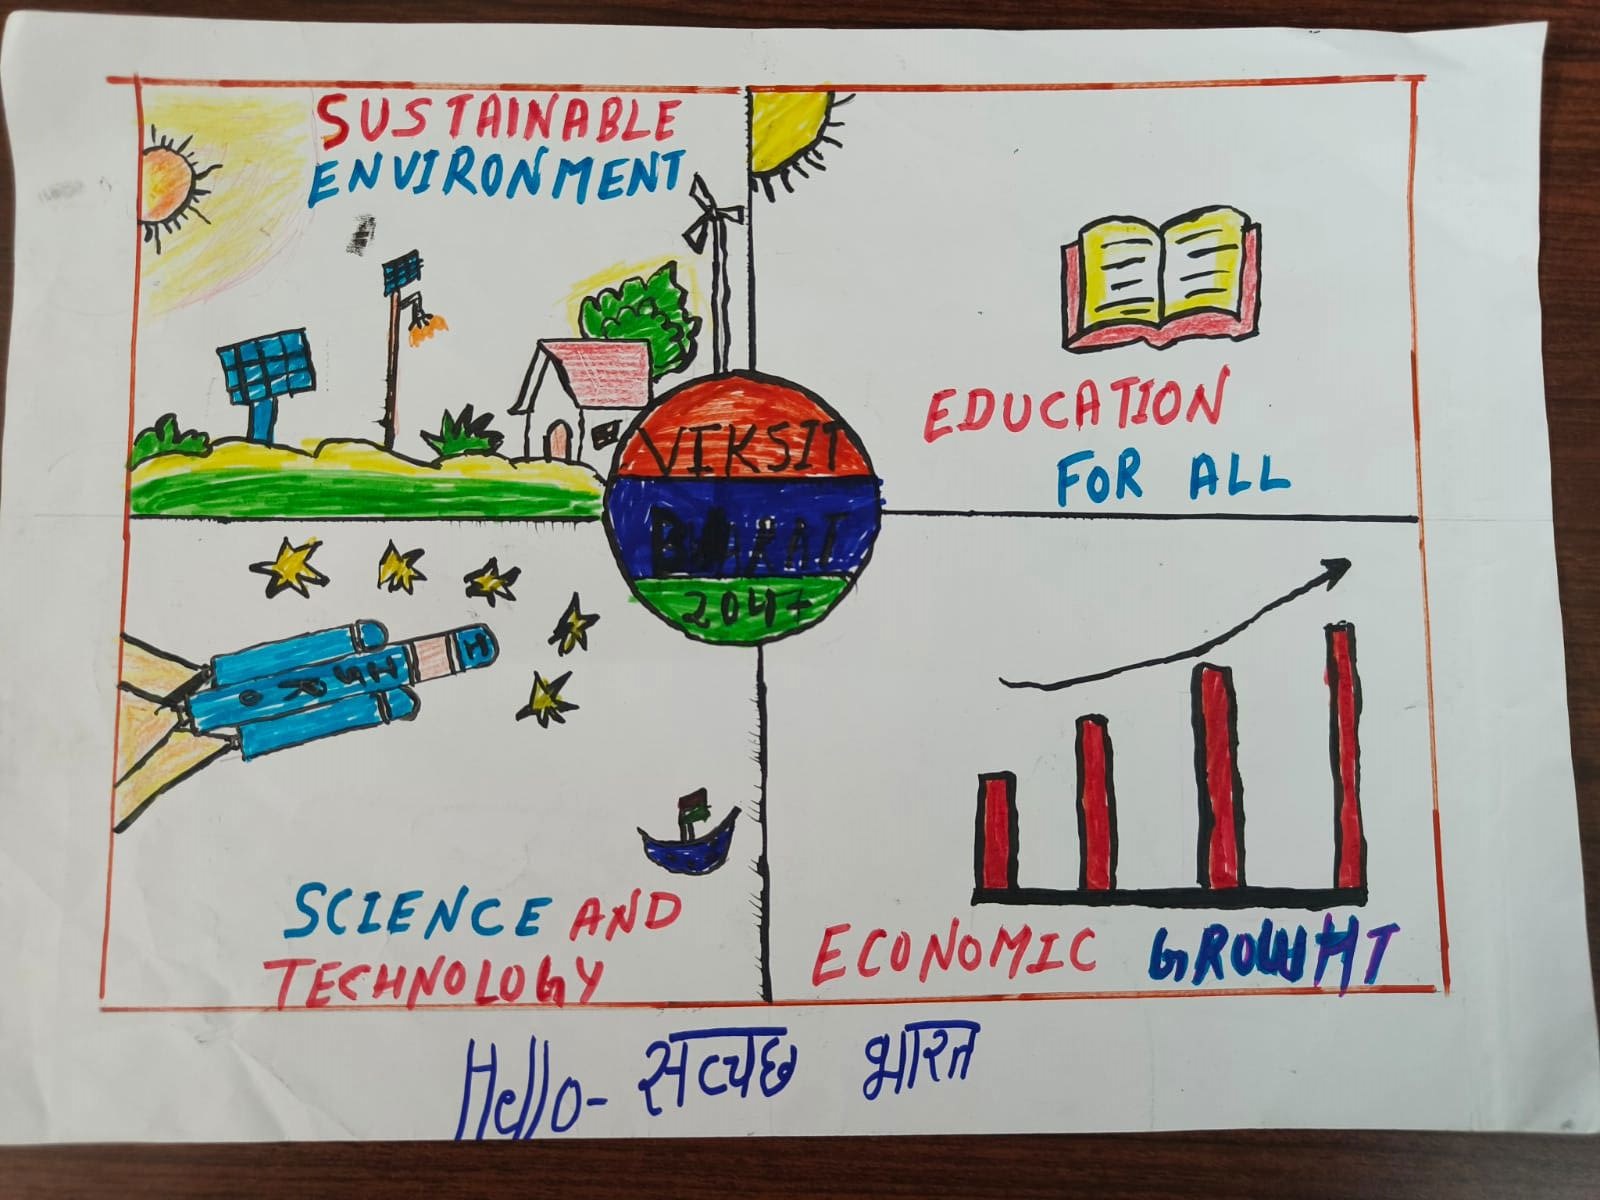 SUSTAINABLE
ENVIRONMENT
EDUCATION
FOR ALL
VIKSIT
BHARAT
2047
SCIENCE AND
TECHNOLOGY
ECONOMIC GROWHT
Hello- सच्चछ भारत